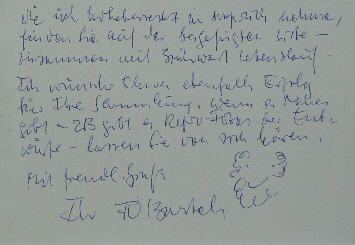 die ich Urheberrecht in Anspruch nehme,
finden Sie auf der beigefügten Liste –
zusammen mit Stichwort Lebenslauf.
Ich wünsche Ihnen ebenfalls Erfolg
für Ihre Sammlung. Wenn es
gibt – zB gibt es Repro-Fotos der Ent-
würfe – lassen Sie von sich hören.
Mit freundl. Gruß
Ihr